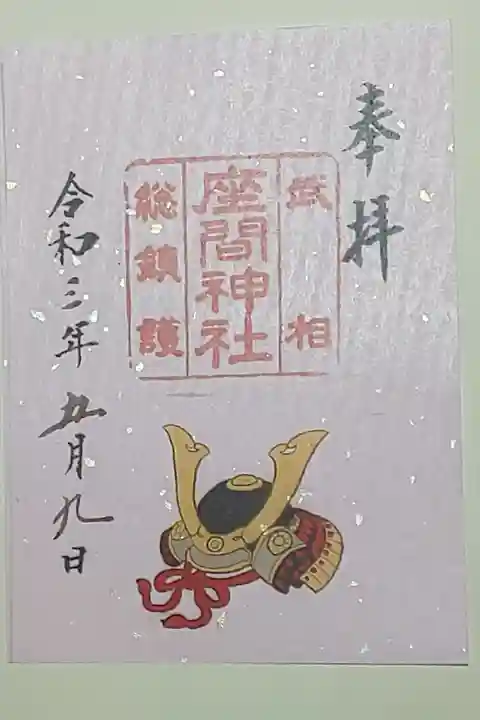 奉拝
武相
座間神社
総鎮護
令和三年五月九日